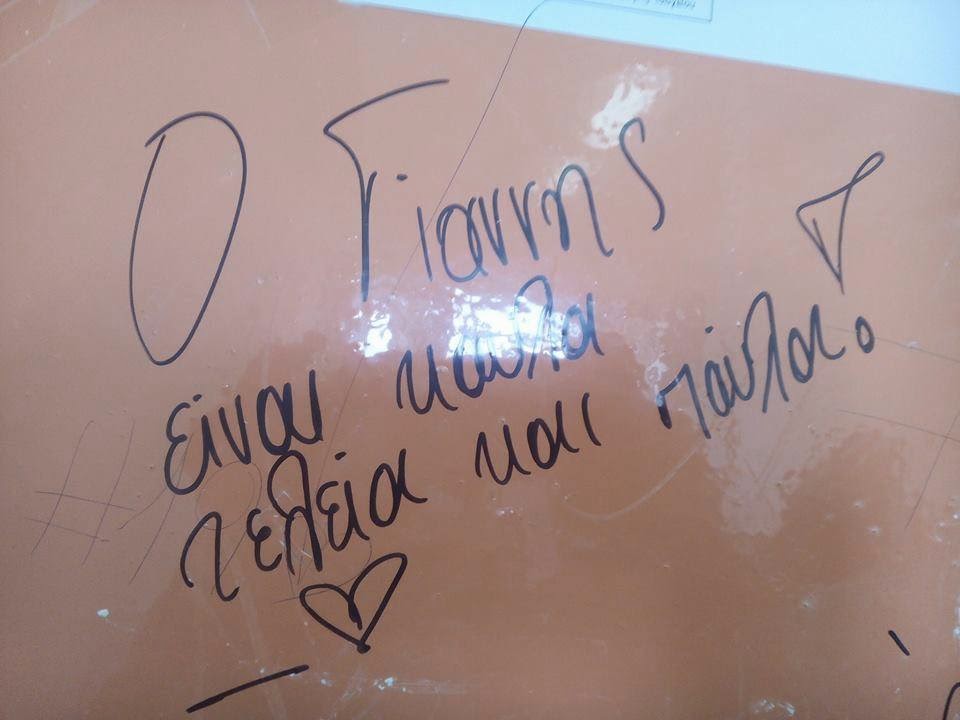 Ο Γιαννης
είναι καυλα
τελεία και παύλα.